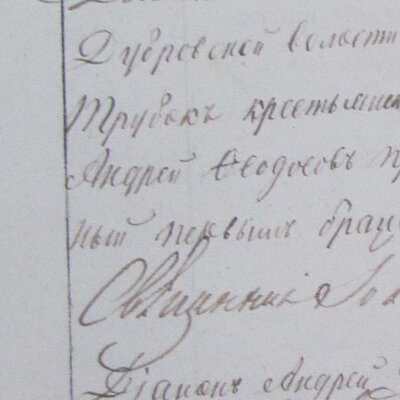 Дубровской волости
Трубокъ крестьянск
Андрей Ѳеодосовъ пр
ный первымъ брако
Священник Іоа
Діаконъ Андрей